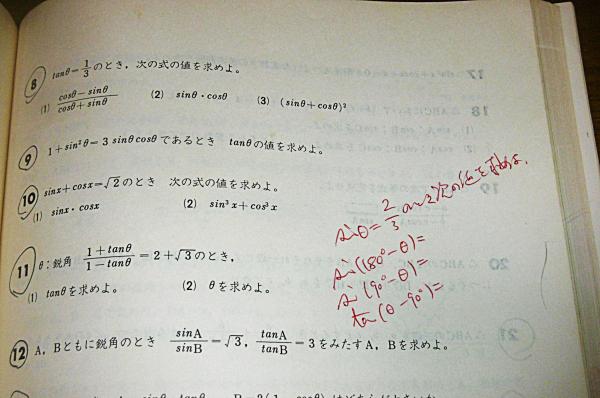 8 tanθ=1/3 のとき, 次の式の値を求めよ。
(1) cosθ−sinθ/cosθ+sinθ (2) sinθ・cosθ (3) (sinθ+cosθ)²
9 1+sin²θ=3 sinθcosθ であるとき tanθの値を求めよ。
10 sinx+cosx=√2 のとき 次の式の値を求めよ。
(1) sinx・cosx (2) sin³x+cos³x
11 θ:鋭角 1+tanθ/1−tanθ=2+√3 のとき,
(1) tanθを求めよ。 (2) θを求めよ。
12 A, Bともに鋭角のとき sinA/sinB=√3, tanA/tanB=3をみたすA, Bを求めよ。
sinθ=2/3 のとき次の値を求めよ.
sin(180°−θ)=
sin(90°−θ)=
tan(θ−90°)=